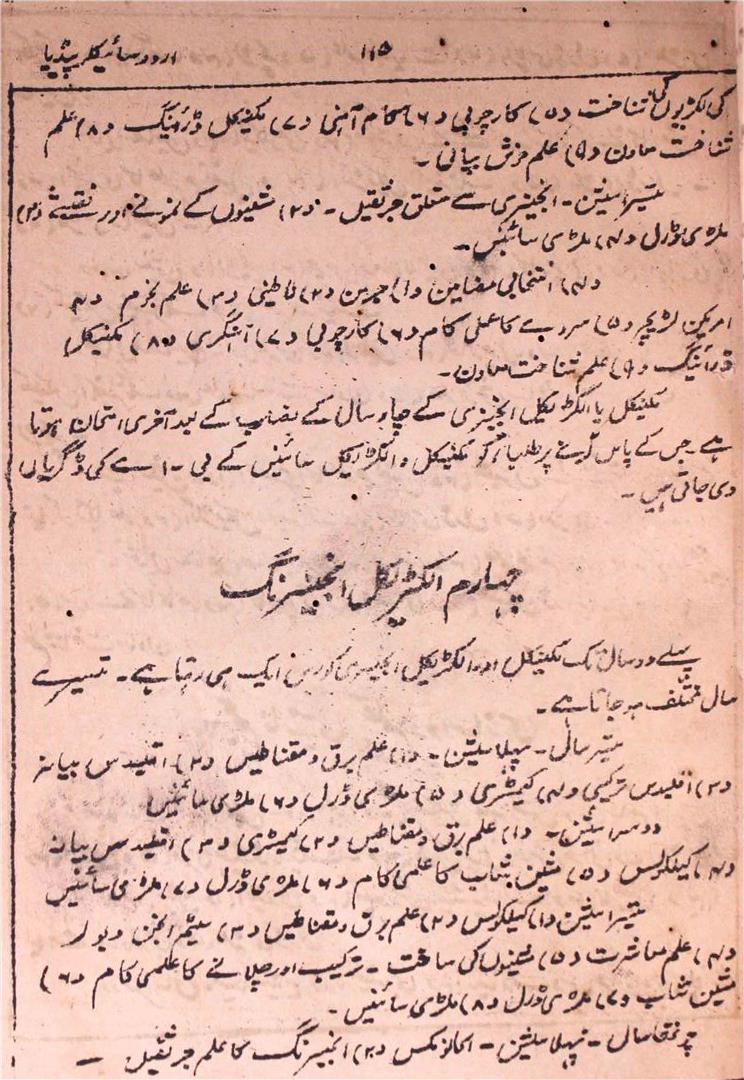 ۱۱۵ اردو سائیکلوپیڈیا
کی لکڑیوں کی شناخت (۵) کارچوبی (۶) کام آہنی (۷) مکنیکل ڈرائینگ (۸) علم
شناخت معادن (۹) علم خوش بیانی ۔
تیسرا سیشن ۔ انجینری سے متعلق جرثقیل ۔ (۲) مشینوں کے نمونے اور نقشے (۳)
ملڑی ڈرل (۴) ملڑی سائنس ۔
(۴) انتخابی مضامین (۱) جرمن (۲) لاطینی (۳) علم نجوم (۴)
امریکن لڑیچر (۵) سروے کا عملی کام (۶) کارچوبی (۷) آہنگری (۸) مکنیکل
ڈرائینگ (۹) علم شناخت معادن ۔
مکنیکل یا الکٹریکل انجینری کے چار سال کے نصاب کے بعد آخری امتحان ہوتا
ہے جس کے پاس کرنے پر طلباء کو مکنیکل و الکٹریکل سائنس کے بی ۔ اے کی ڈگریاں
دی جاتی ہیں ۔
چہارم الکٹریکل انجینئرنگ
پہلے دو سال تک مکنیکل اور الکٹریکل انجینری کورس ایک ہی رہتا ہے ۔ تیسرے
سال مختلف ہو جاتا ہے ۔
تیسرا سال ۔ پہلا سیشن ۔ (۱) علم برق و مقناطیس (۲) اقلیدس بیانہ
(۳) اقلیدس ترکیبی (۴) کیمسٹری (۵) ملڑی ڈرل (۶) ملڑی سائنس
دوسرا سیشن ۔ (۱) علم برق و مقناطیس (۲) کیمسٹری (۳) اقلیدس بیانہ
(۴) کیلکولس (۵) مشین شاپ کا علمی کام (۶) ملڑی ڈرل (۷) ملڑی سائنس
تیسرا سیشن (۱) کیلکولس (۲) علم برق و مقناطیس (۳) سٹیم انجن و بولر
(۴) علم معاشرت (۵) مشینوں کی ساخت ۔ ترکیب اور چلانے کا علمی کام (۶)
مشین شاپ (۷) ملڑی ڈرل (۸) ملڑی سائنس ۔
چوتھا سال ۔ پہلا سیشن ۔ (۲) انجینئرنگ کا علم جرثقیل ۔